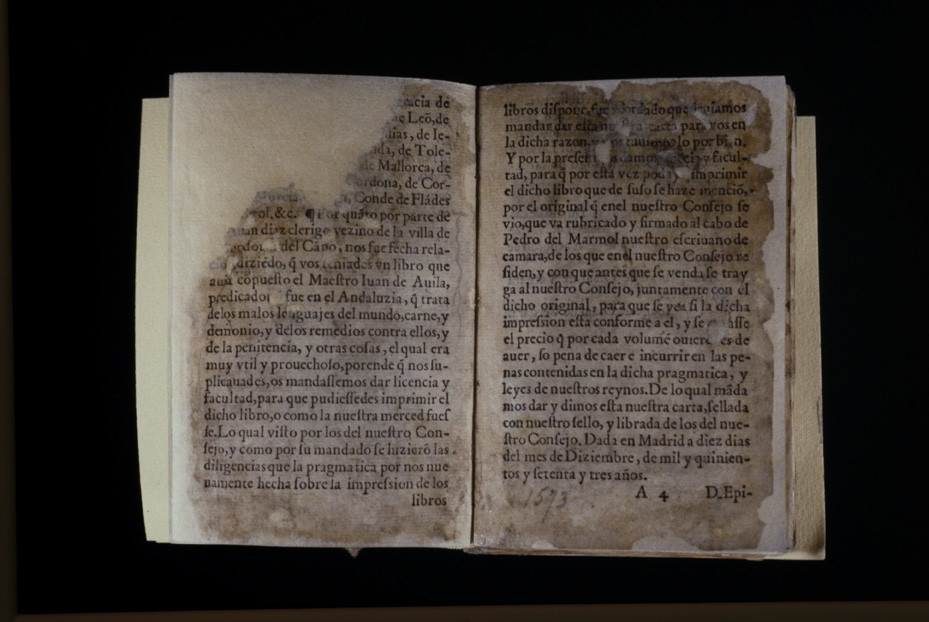 acia de
Leõ, de
de Ie-
de Tole-
de Mallorca, de
de Cor-
Conde de Flãdes
&c. ¶ Por quãto por parte de
diaz clerigo vezino de la villa de
del Cãpo, nos fue fecha rela-
diziẽdo, q̃ vos teniades vn libro que
auia cõpuesto el Maestro Iuan de Auila,
predicador fue en el Andaluzia, q̃ trata
delos malos lenguajes del mundo, carne, y
demonio, y delos remedios contra ellos, y
de la penitencia, y otras cosas, el qual era
muy vtil y prouechoso, porende q̃ nos su-
plicauades, os mandassemos dar licencia y
facultad, para que pudiessedes imprimir el
dicho libro, o como la nuestra merced fues
se. Lo qual visto por los del nuestro Con-
sejo, y como por su mandado se hizierõ las
diligencias que la pragmatica por nos nue
uamente hecha sobre la impression de los
libros
libros dispone, fue acordado que deuiamos
mandar dar esta carta para vos en
la dicha razon, lo por bien.
Y por la presente damos y facul-
tad, para q̃ por esta vez imprimir
el dicho libro que de suso se haze menciõ,
por el original q̃ enel nuestro Consejo se
vio, que va rubricado y firmado al cabo de
Pedro del Marmol nuestro escriuano de
camara, de los que enel nuestro Consejo re
siden, y con que antes que se venda se tray
ga al nuestro Consejo, juntamente con el
dicho original, para que se vea si la dicha
impression esta conforme a el, y se
el precio q̃ por cada volumẽ de
auer, so pena de caer e incurrir en las pe-
nas contenidas en la dicha pragmatica, y
leyes de nuestros reynos. De lo qual mãda
mos dar y dimos esta nuestra carta, sellada
con nuestro sello, y librada de los del nue-
stro Consejo. Dada en Madrid a diez dias
del mes de Diziembre, de mil y quinien-
tos y setenta y tres años.
1573
A 4 D. Epi-